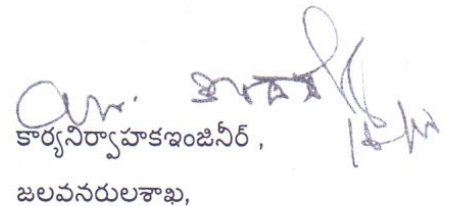 కార్యనిర్వాహకఇంజినీర్ ,
జలవనరులశాఖ,